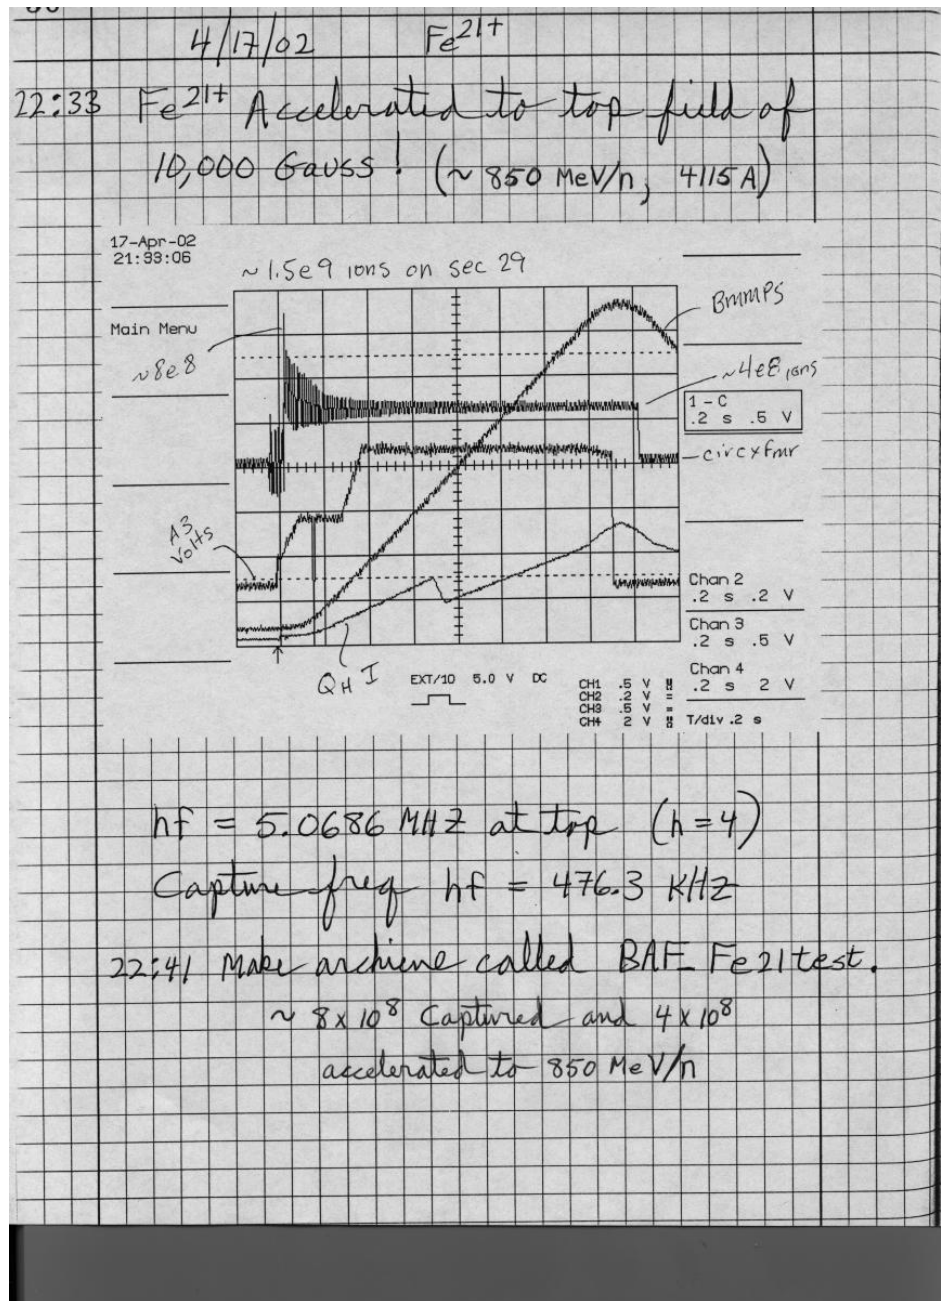 4/17/02 Fe²¹⁺
22:33 Fe²¹⁺ Accelerated to top field of
10,000 Gauss! (~ 850 MeV/n, 4115 A)
17-Apr-02
21:33:06
~1.5e9 ions on sec 29
BMMPS
Main Menu
~8e8
~4e8 ions
1-C
.2 s .5 V
circ xfmr
A3
Volts
Chan 2
.2 s .2 V
Chan 3
.2 s .5 V
Chan 4
.2 s 2 V
QH I
EXT/10 5.0 V DC
CH1 .5 V
CH2 .2 V =
CH3 .5 V =
CH4 2 V
T/div .2 s
hf = 5.0686 MHZ at top (h=4)
Capture freq hf = 476.3 KHZ
22:41 Make archive called BAF_Fe21test.
~ 8 x 10⁸ Captured and 4 x 10⁸
accelerated to 850 MeV/n